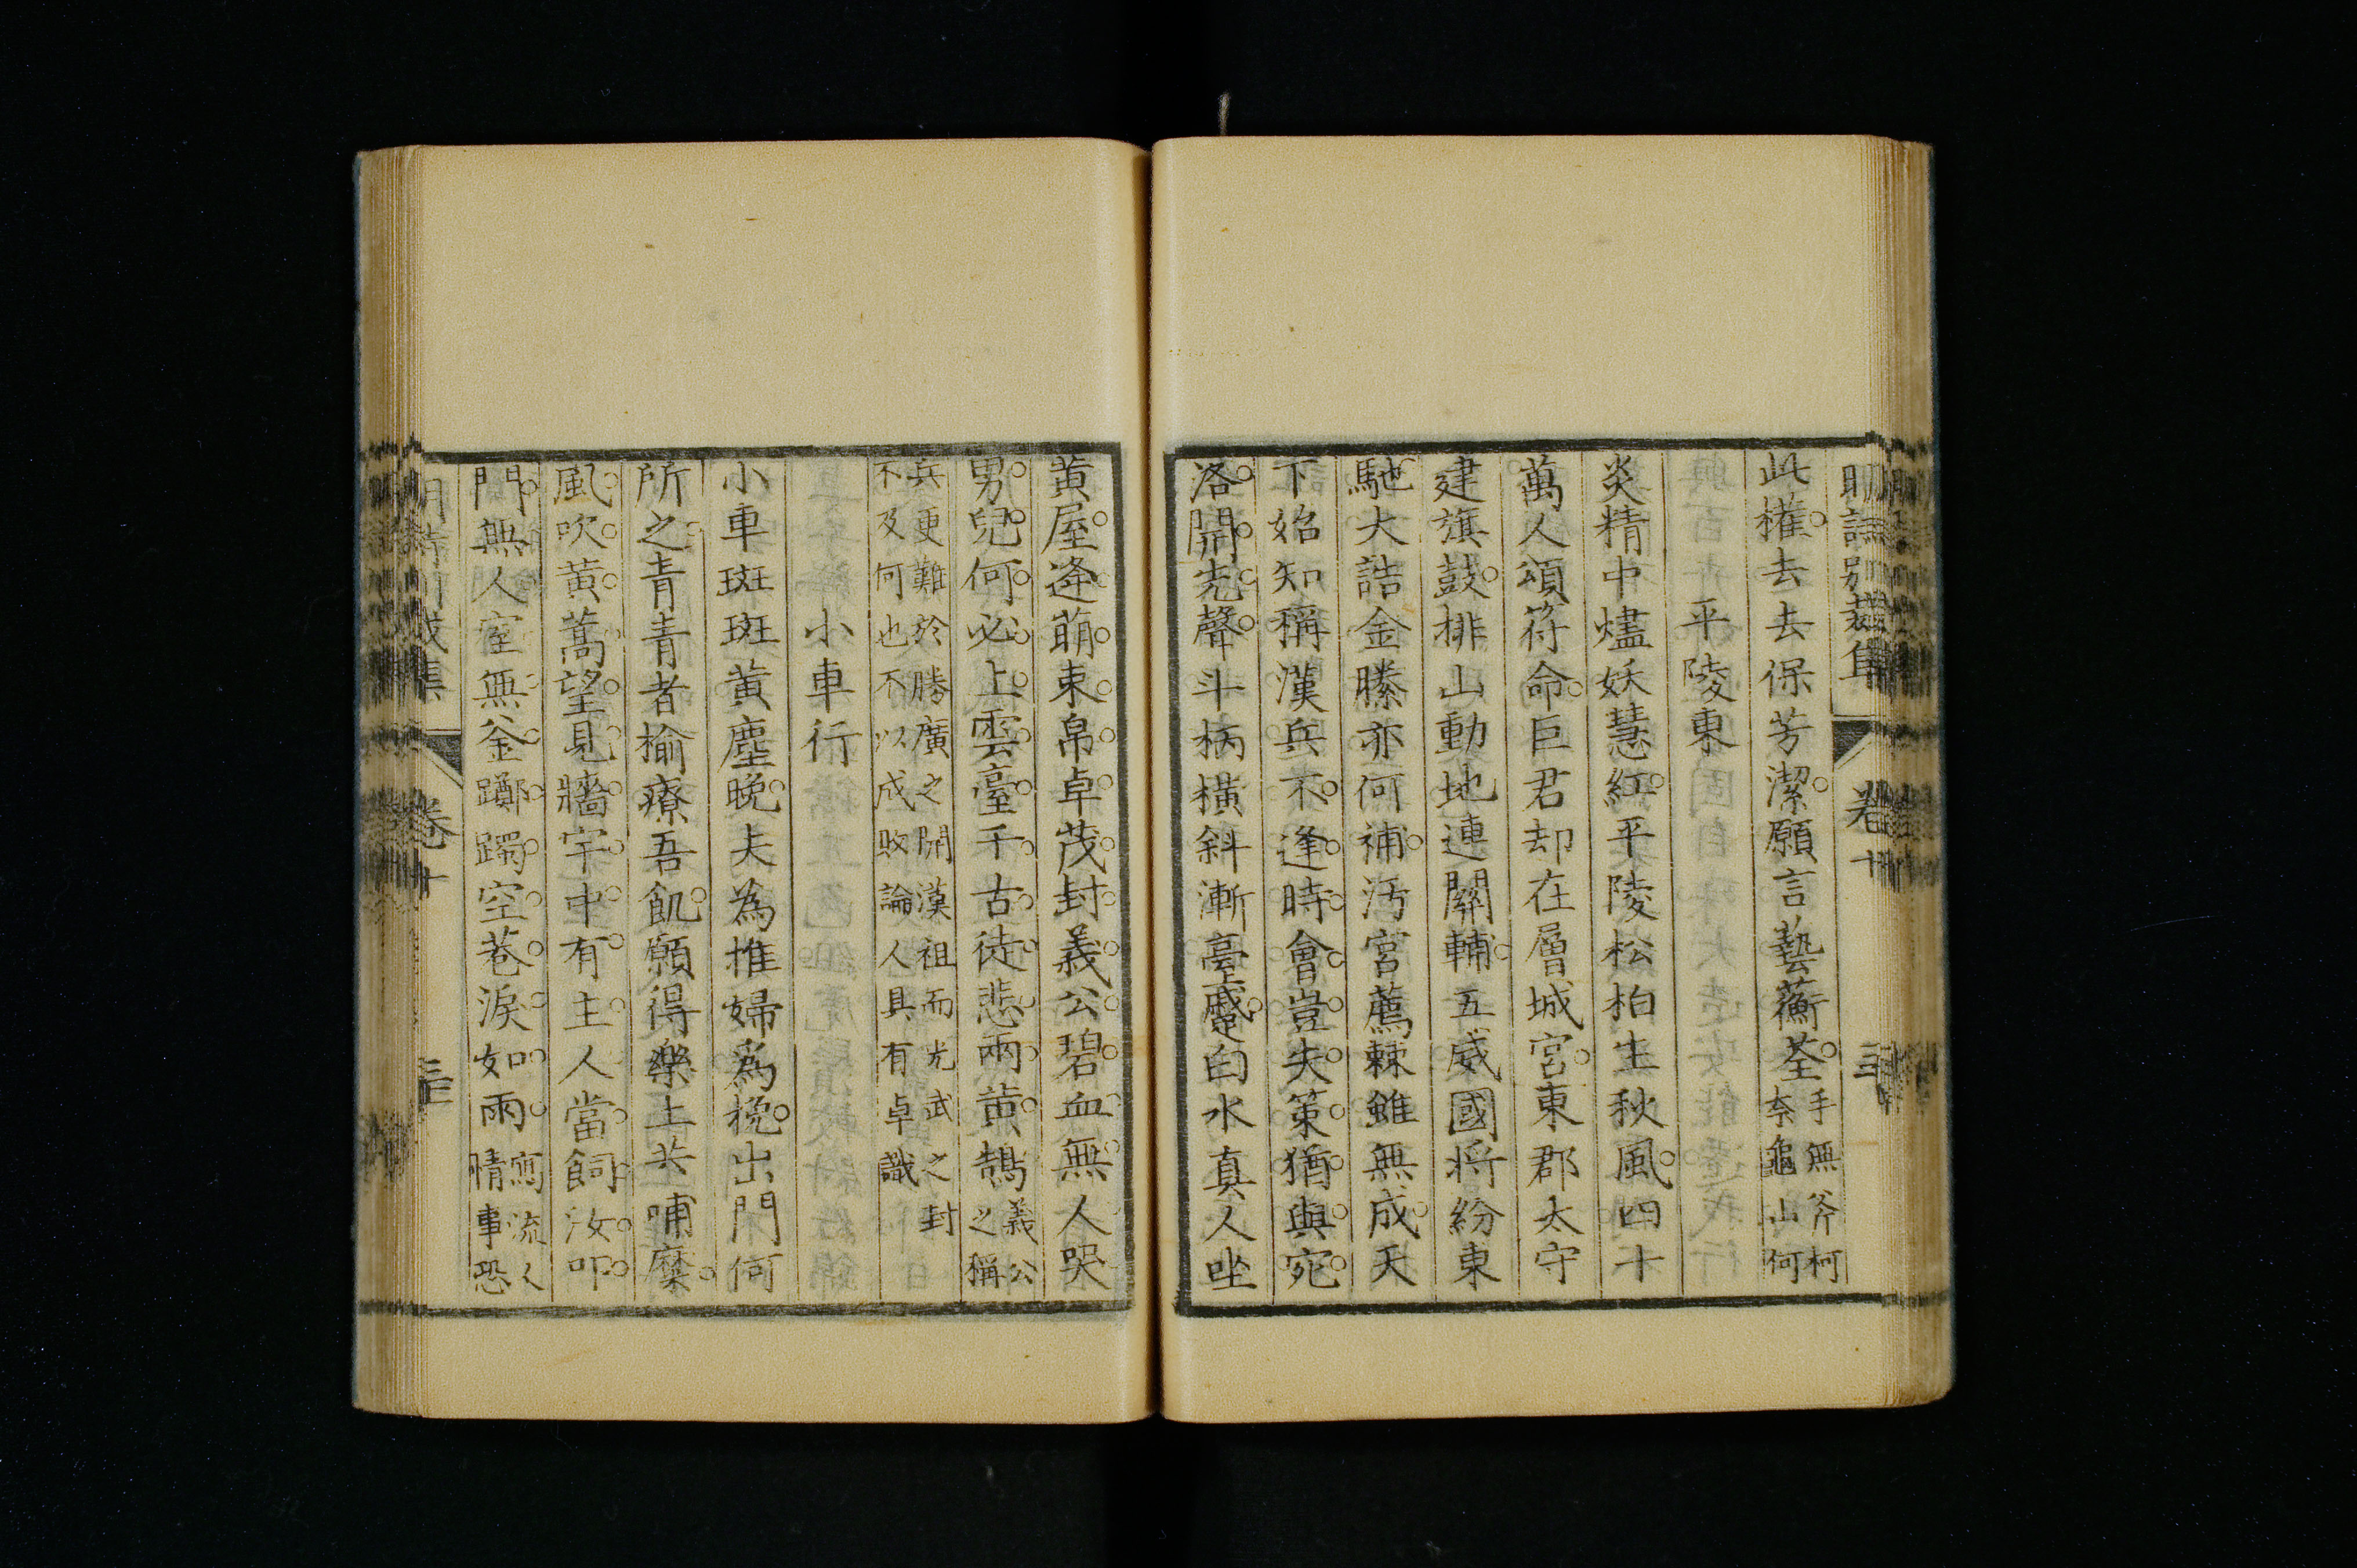 明詩別裁集 卷十 三
此權去去保芳潔願言藝蘅荃手無斧柯
奈龜山何
平陵東
炎精中燼妖彗紅平陵松柏生秋風四十
萬人頌符命巨君却在層城宮東郡太守
建旗鼓排山動地連關輔五威國將紛東
馳大誥金縢亦何補汚宮薦棘雖無成天
下始知稱漢兵不逢時會豈失策猶與宛
洛開先聲斗柄橫斜漸臺蹙白水真人坐
黃屋逄萌束帛卓茂封義公碧血無人哭
男兒何必上雲臺千古徒悲兩黃鵠義公
之稱
兵更難於勝廣之開漢祖而光武之封
不及何也不以成敗論人具有卓識
小車行
小車斑斑黃塵晚夫為推婦為挽出門何
所之青青者榆療吾飢願得樂土共哺糜
風吹黃蒿望見牆宇中有主人當飼汝叩
門無人室無釜躑躅空巷淚如雨寫流人
情事恐
卷十